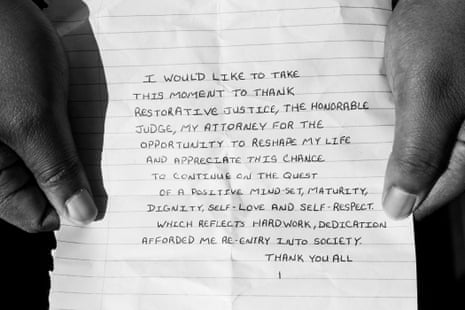 I WOULD LIKE TO TAKE
THIS MOMENT TO THANK
RESTORATIVE JUSTICE, THE HONORABLE
JUDGE, MY ATTORNEY FOR THE
OPPORTUNITY TO RESHAPE MY LIFE
AND APPRECIATE THIS CHANCE
TO CONTINUE ON THE QUEST
OF A POSITIVE MIND-SET, MATURITY,
DIGNITY, SELF-LOVE AND SELF-RESPECT.
WHICH REFLECTS HARDWORK, DEDICATION
AFFORDED ME RE-ENTRY INTO SOCIETY.
THANK YOU ALL
1